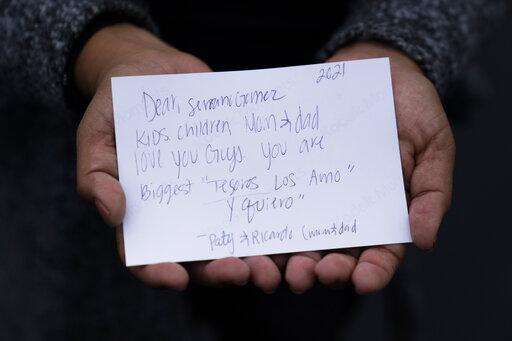 2021
Dear Gomez
Kids, children Mom & dad
love you Guys. you are
Biggest "Tesoros Los Amo"
y quiero"
- Paty & Ricardo (mom & dad